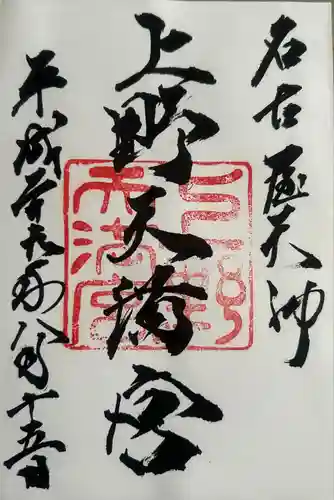 名古屋天神
上野天満宮
平成廿九年八月十五日
上野
天満宮